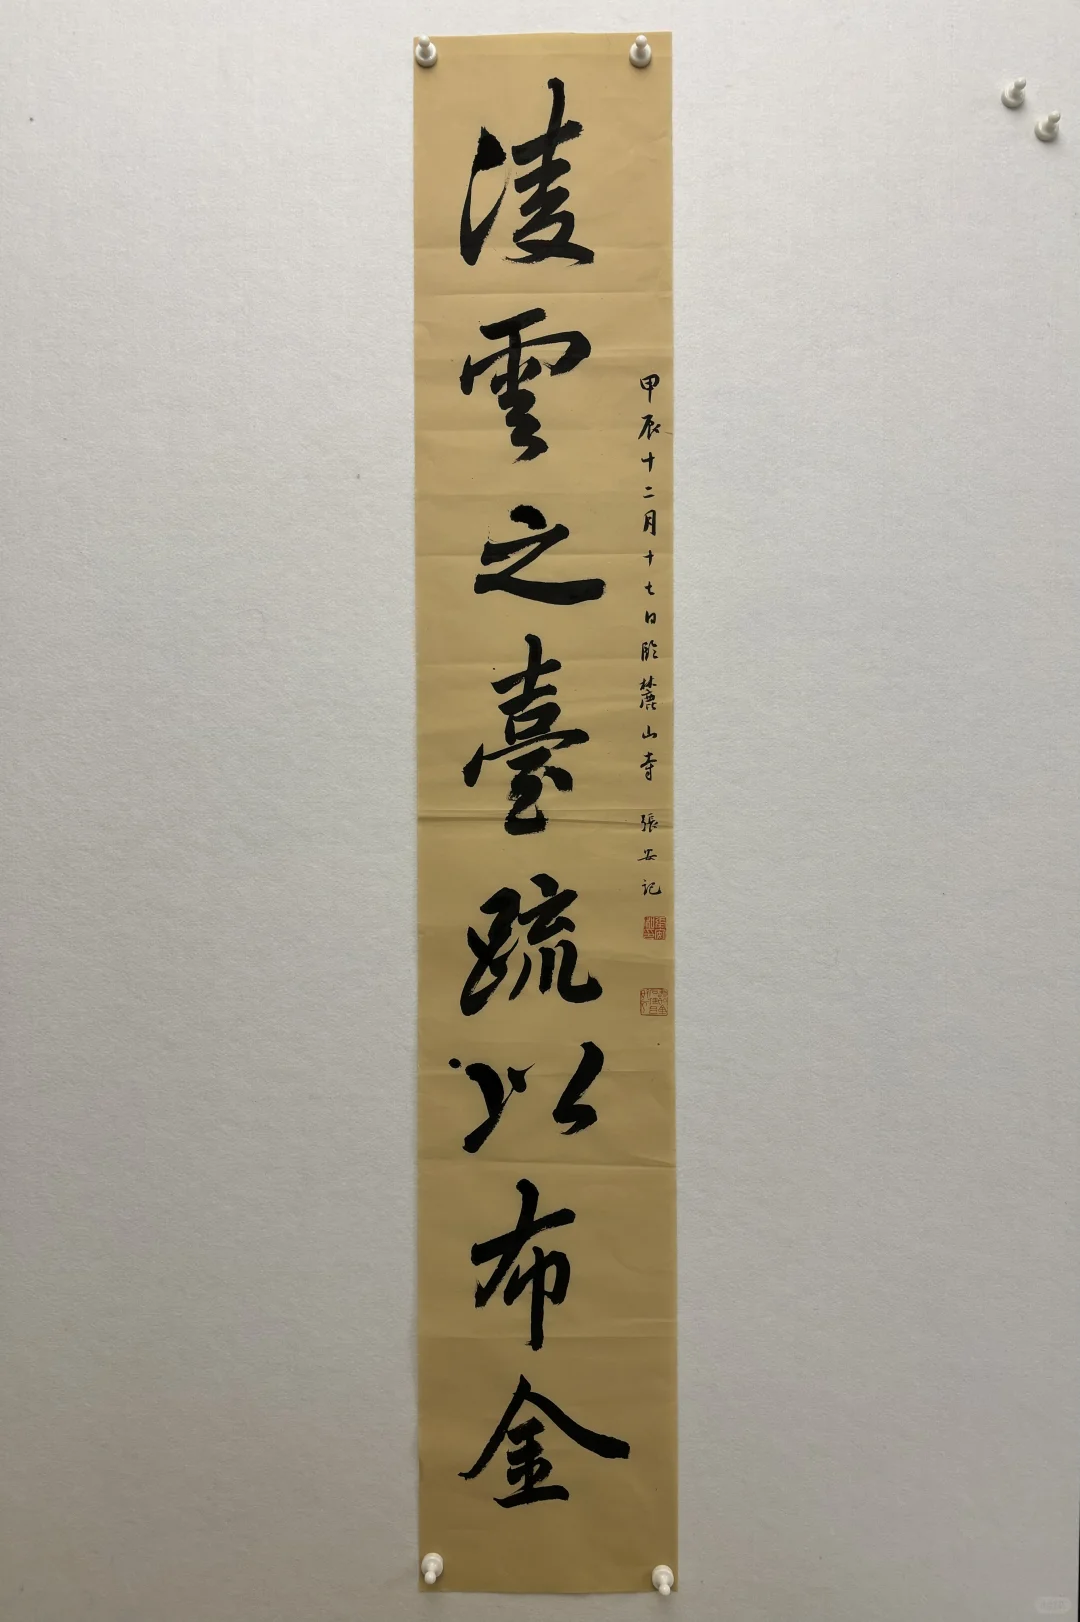 淩雲之臺疏以布金
甲辰十二月十七日臨麓山寺 張安記